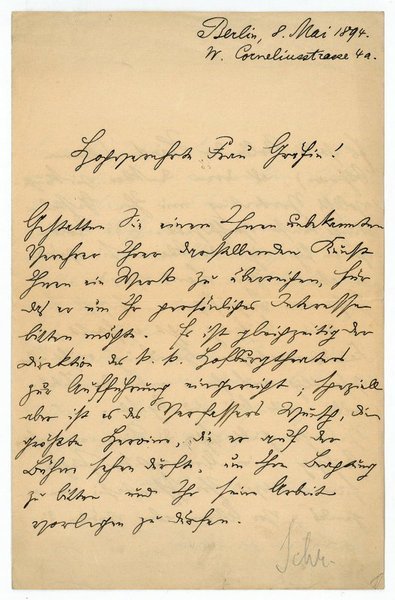 Berlin, 8. Mai 1894.
W. Corneliusstrasse 4a.
Hochverehrte Frau Gräfin!
Gestatten Sie einem Ihnen unbekannten
Verehrer Ihrer darstellenden Kunst
Ihnen ein Werk zu überreichen, für
das er um Ihr persönliches Interesse
bitten möchte. Es ist gleichzeitig der
Direktion des k. k. Hofburgtheaters
zur Aufführung eingereicht; speziell
aber ist es des Verfassers Wunsch, die
größte Heroine, die er auf der
Bühne sehen durfte, um Ihre Beachtung
zu bitten und Ihr seine Arbeit
vorlegen zu dürfen.
Schr.